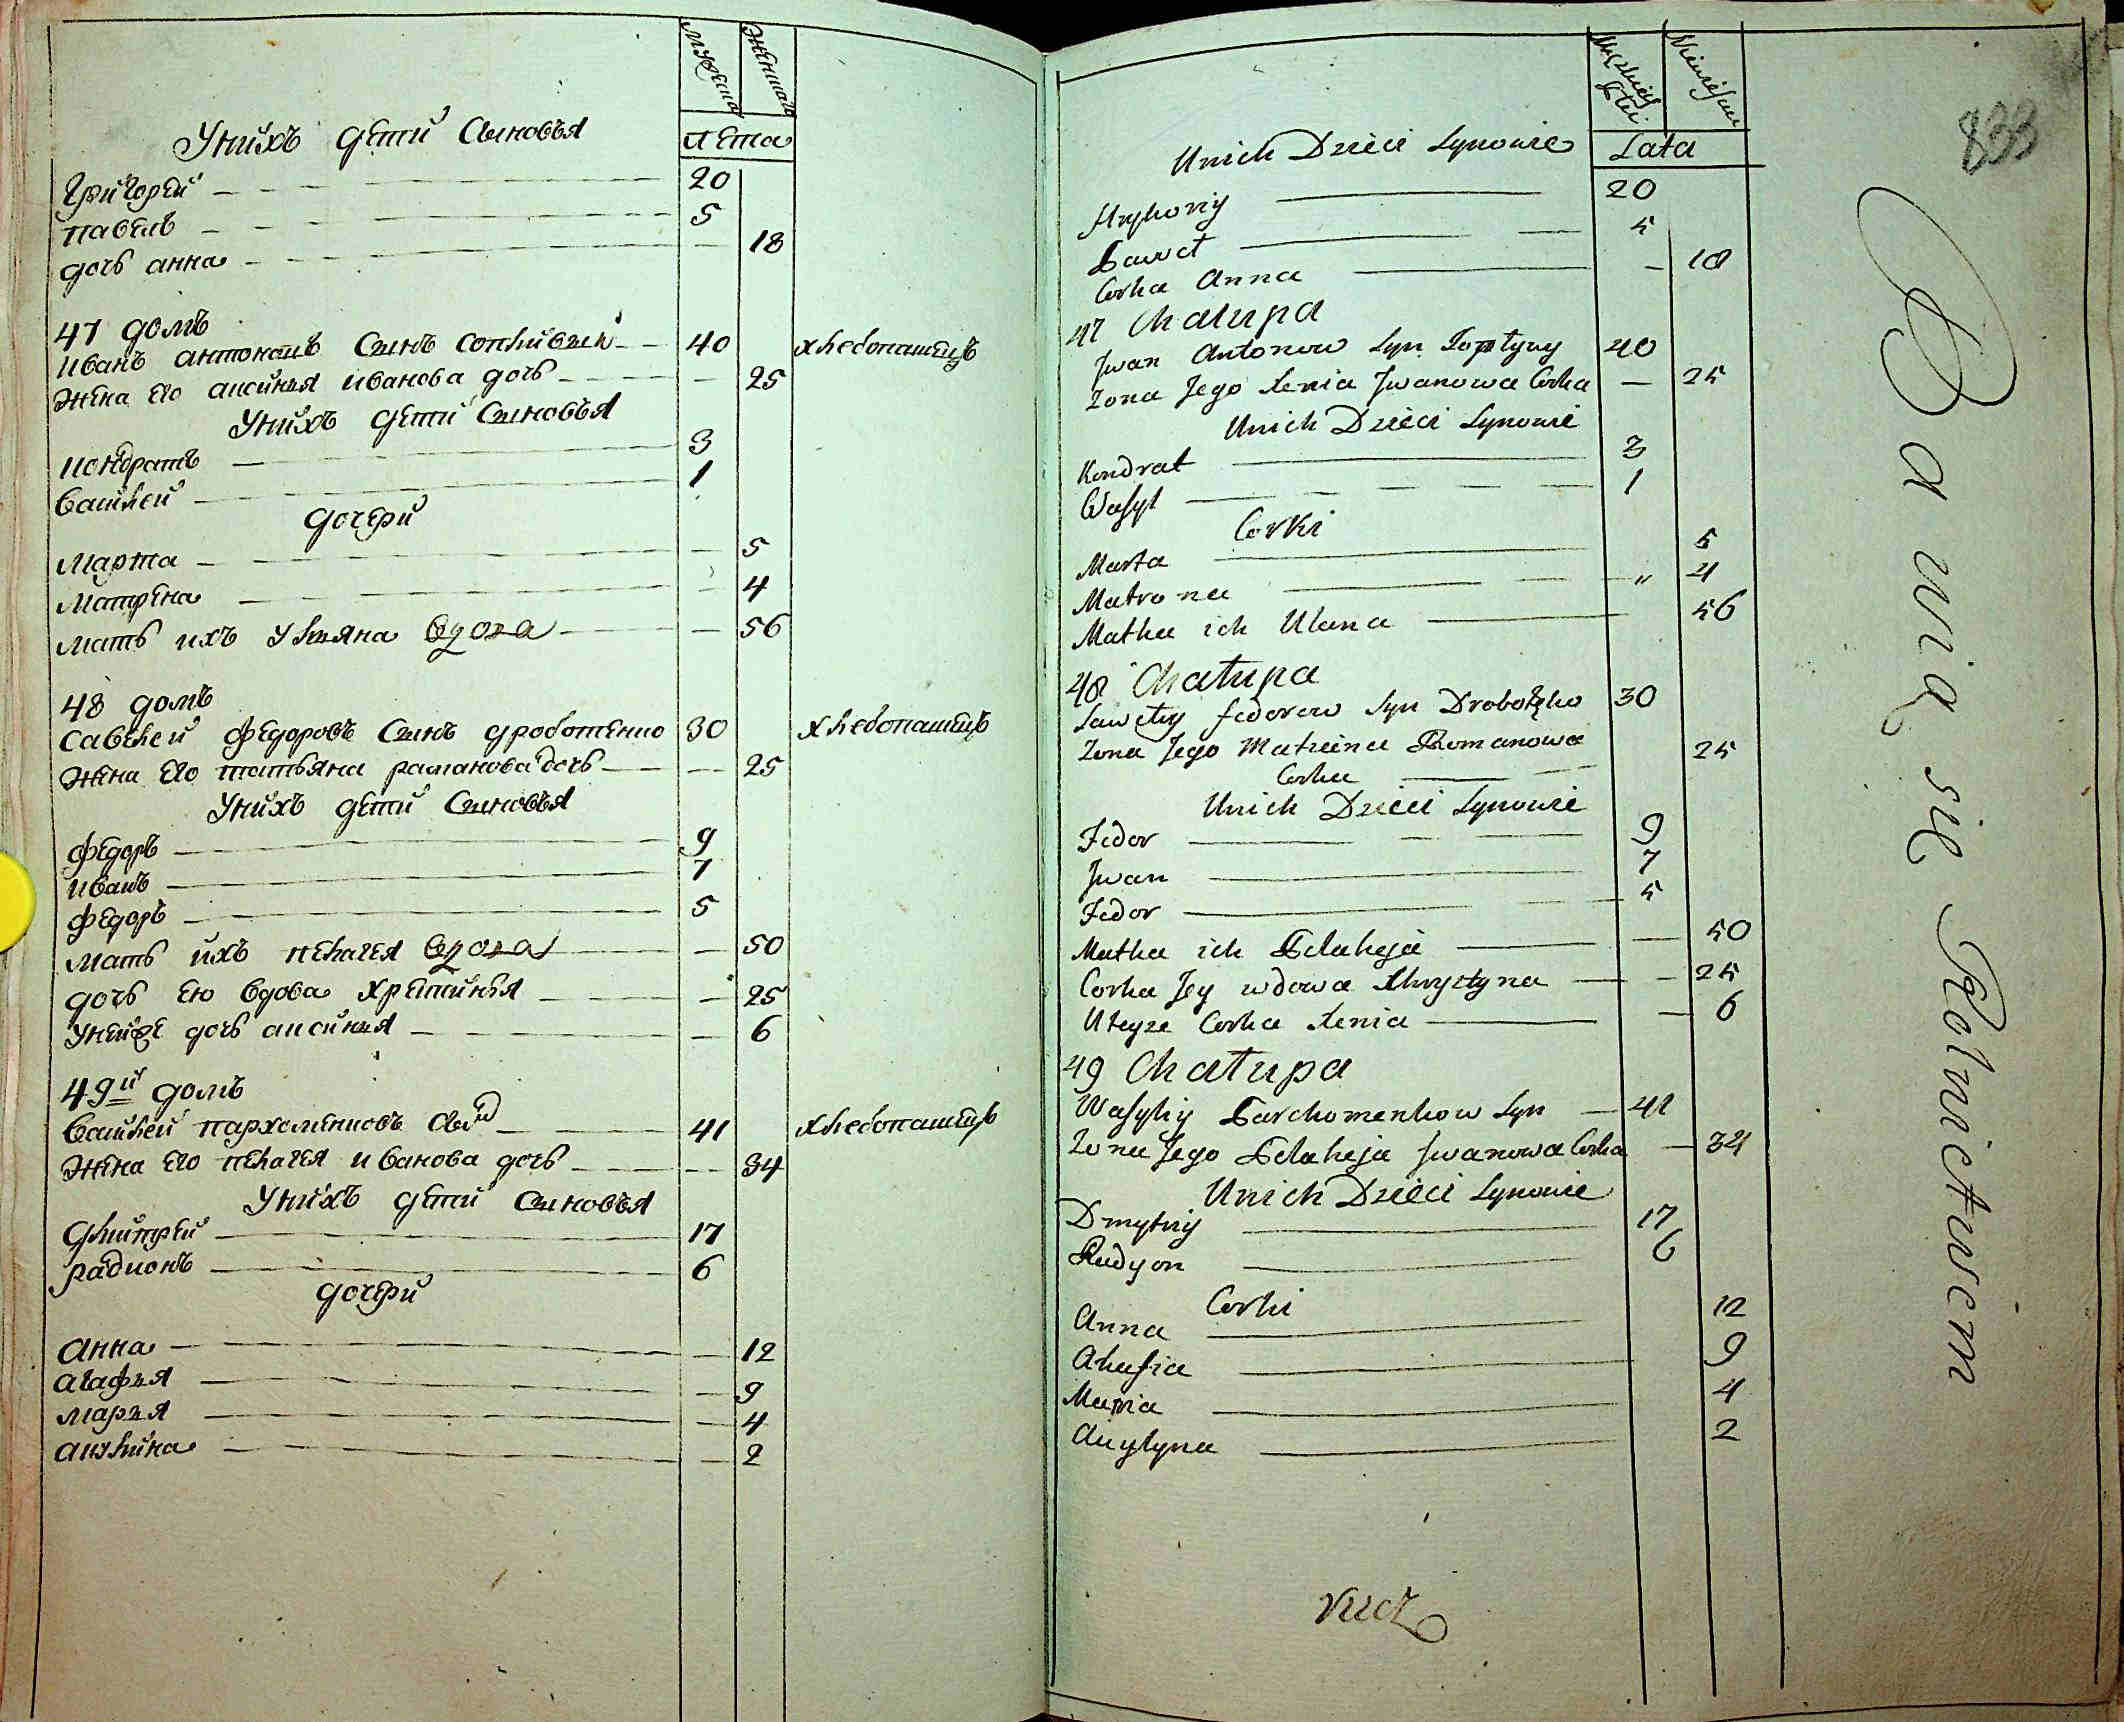 Мужеска
Женска
Лета
Унихъ дети Сыновья
Григорей 20
павелъ 5
дочь анна 18
47 домъ
Иванъ антоновъ Сынъ 40 хлебопашецъ
Жена Его аксинья иванова дочь 25
Унихъ дети Сыновья
кондратъ 3
Василей 1
дочери
Марта 5
Матрена 4
мать ихъ ульяна вдова 56
48 домъ
Савелей Федоровъ Сынъ дроботенко 30 хлебопашецъ
Жена Его татьяна раманова дочь 25
Унихъ дети Сыновья
Федоръ 9
Иванъ 7
Федоръ 5
мать ихъ пелагея вдова 50
дочь Ею вдова христинья 25
Унейже дочь аксинья 6
49й домъ
Василей пархоменковъ Сынъ 41 хлебопашецъ
Жена Его пелагея иванова дочь 34
Унихъ дети Сыновья
Дмитрей 17
радионъ 6
дочери
Анна 12
Агафья 9
Марья 4
Акулина 2
Lata
Unich Dzieci Synowie
Hryhoriy 20
Paweł 5
Corka Anna 18
47 Chałupa
Jwan Antonow Syn 40
Zona Jego Xenia Jwanowa Corka 25
Unich Dzieci Synowie
Kondrat 3
Wasyl 1
Corki
Marta 5
Matrona " 4
Matka ich Ulana 56
48 Chałupa
Sawely Fedorow Syn Drobotęko 30
Zona Jego Romanowa 25
Corka
Unich Dzieci Synowie
Fedor 9
Jwan 7
Fedor 5
Matka ich Pelaheja 50
Corka Jey wdowa Chrystyna 25
Uteyze Corka Xenia 6
49 Chałupa
Wasyliy Parchomenkow Syn 41
Zona Jego Pelaheja Jwanowa Corka 34
Unich Dzieci Synowie
Dmytriy 17
Radyon 6
Corki
Anna 12
Ahafia 9
Maria 4
Akulyna 2
833
Bawią się Rolnictwem